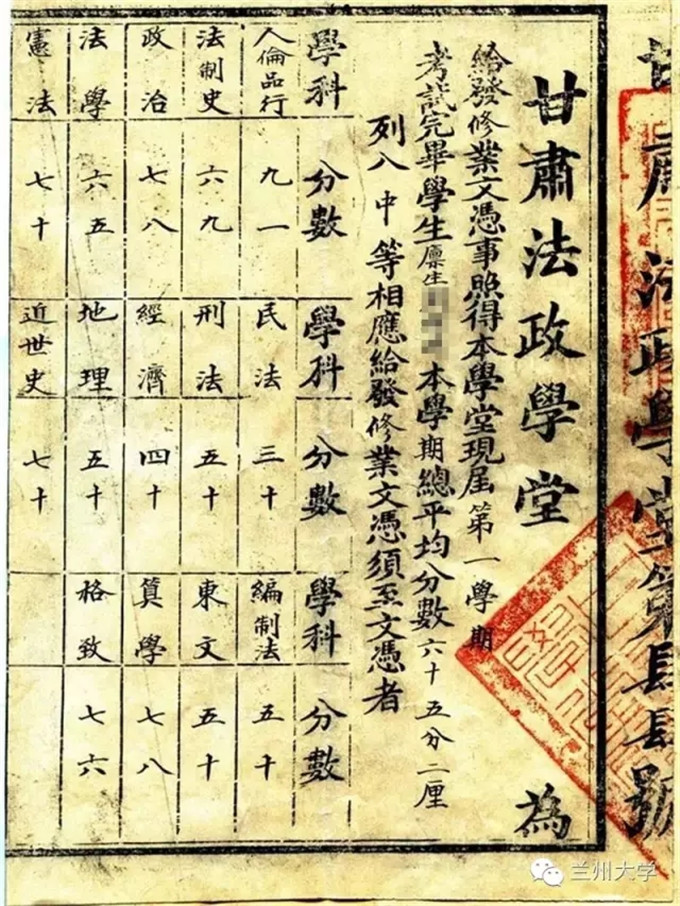 甘肅法政學堂第號
甘肅法政學堂 為
給發修業文憑事照得本學堂現屆第一學期
考試完畢學生廩生 本學期總平均分數六十五分二厘
列入中等相應給發修業文憑須至文憑者
學科 分數 學科 分數 學科 分數
人倫品行 九一 民法 三十 編制法 五十
法制史 六九 刑法 五十 東文 五十
政治 七八 經濟 四十 算學 七八
法學 六五 地理 五十 格致 七六
憲法 七十 近世史 七十
兰州大学